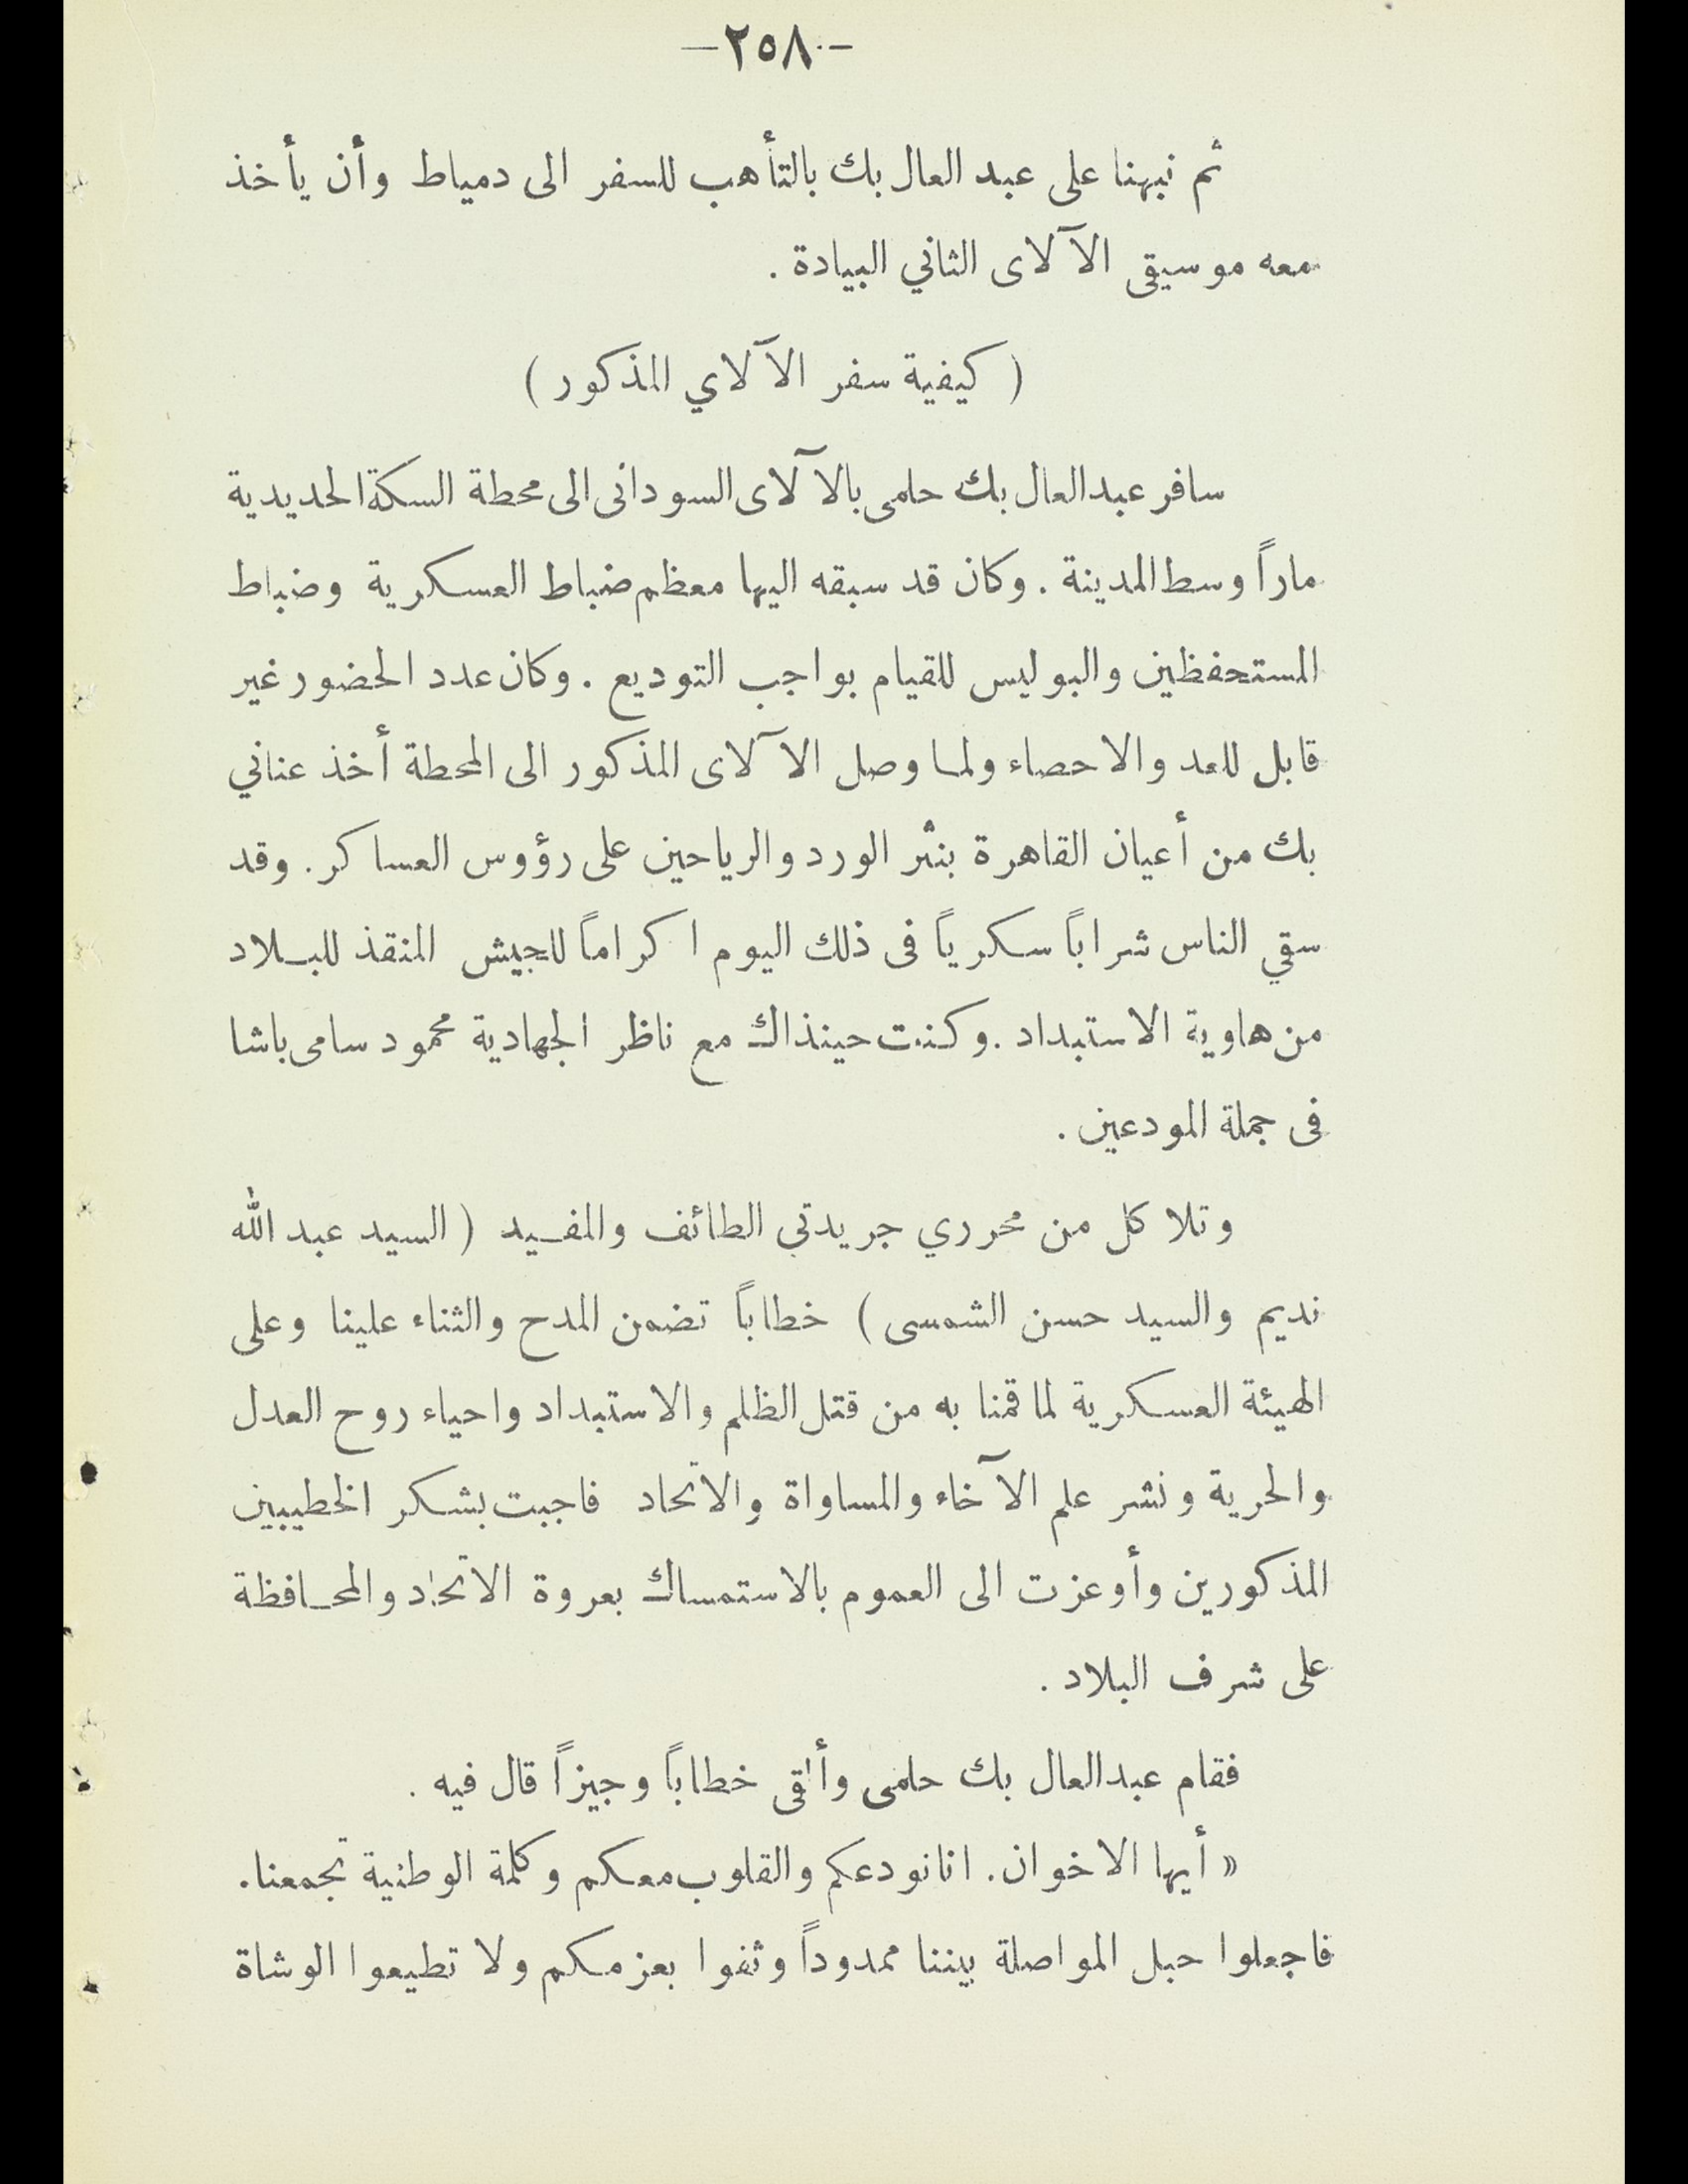 -٢٥٨-
ثم نبهنا على عبد العال بك بالتأهب للسفر الى دمياط وأن يأخذ
معه موسيقى الآلاى الثاني البيادة .
( كيفية سفر الآلاي المذكور )
سافر عبد العال بك حلمى بالآلاى السودانى الى محطة السكة الحديدية
ماراً وسط المدينة . وكان قد سبقه اليها معظم ضباط العسكرية وضباط
المستحفظين والبوليس للقيام بواجب التوديع . وكان عدد الحضور غير
قابل للعد والاحصاء ولما وصل الآلاى المذكور الى المحطة أخذ عناني
بك من أعيان القاهرة بنثر الورد والرياحين على رؤوس العساكر . وقد
سقي الناس شراباً سكرياً فى ذلك اليوم اكراماً للجيش المنقذ للبلاد
من هاوية الاستبداد . وكنت حينذاك مع ناظر الجهادية محمود سامى باشا
فى جملة المودعين .
وتلا كل من محرري جريدتي الطائف والمفيد ( السيد عبد الله
نديم والسيد حسن الشمسى ) خطاباً تضمن المدح والثناء علينا وعلى
الهيئة العسكرية لما قمنا به من قتل الظلم والاستبداد واحياء روح العدل
والحرية ونشر علم الآخاء والمساواة والاتحاد فاجبت بشكر الخطيبين
المذكورين وأوعزت الى العموم بالاستمساك بعروة الاتحاد والمحافظة
على شرف البلاد .
فقام عبد العال بك حلمى وألقى خطاباً وجيزاً قال فيه .
« أيها الاخوان . انا نودعكم والقلوب معكم وكلمة الوطنية تجمعنا .
فاجعلوا حبل المواصلة بيننا ممدوداً وثفوا بعزمكم ولا تطيعوا الوشاة